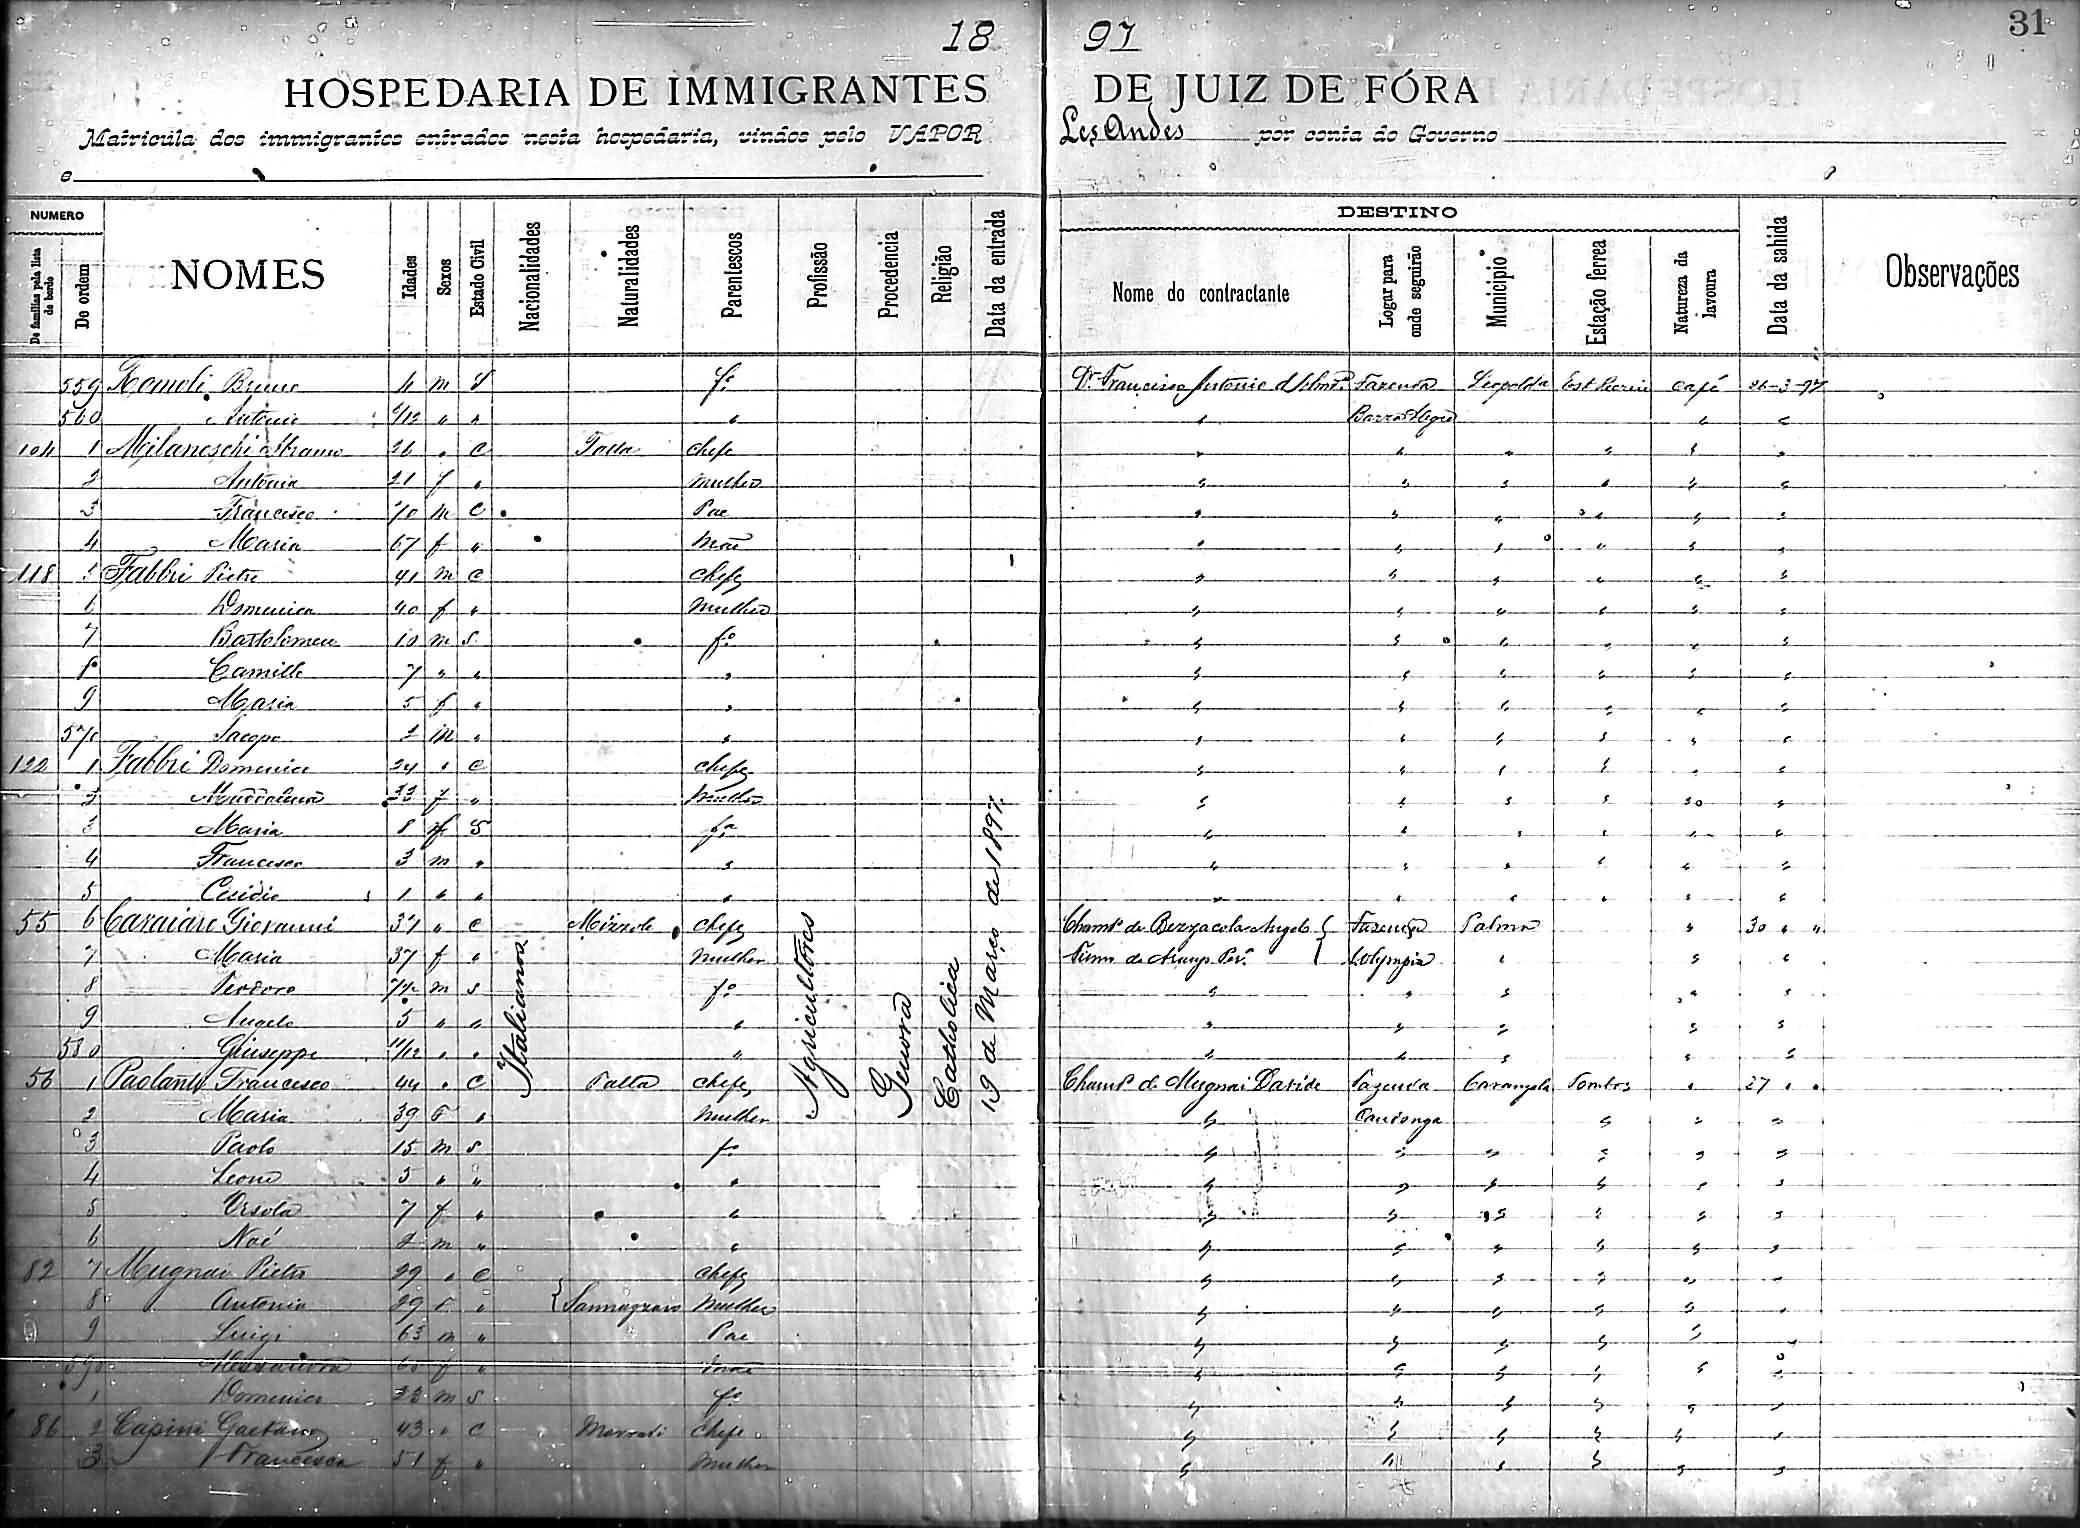 18 97
31
HOSPEDARIA DE IMMIGRANTES DE JUIZ DE FÓRA
Matricula dos immigrantes entrados nesta hospedaria, vindos pelo VAPOR Les Andes por conta do Governo
e
NUMERO
De familias pela lista de bordo
De ordem
NOMES
Idades
Sexos
Estado Civil
Nacionalidades
Naturalidades
Parentescos
Profissão
Procedencia
Religião
Data da entrada
DESTINO
Nome do contractante
Logar para onde seguirão
Municipio
Estação ferrea
Natureza da lavoura
Data da sahida
Observações
559 Bruno 4 m S fo Dr. Francisco Antonio Fazenda Leopoldina café 26-3-97
560 Antonio /12 " " " " Barra Alegre " "
104 1 Milaneschi 26 " C Talla chefe " " " " " "
2 Antonia 21 f " mulher " " " " " "
3 Francesco 70 m C Pae " " " " " "
4 Maria 67 f " Mãe " " " " " "
118 5 Fabbri Pietro 41 m C chefe " " " " " "
6 Domenica 40 f " Mulher " " " " " "
7 Bartolomeu 10 m S fo " " " " " "
8 Camillo 7 " " " " " " " " "
9 Maria 5 f " " " " " " " "
570 Jacopo 2 m " " " " " " " "
122 1 Fabbri Domenico 24 " C chefe " " " " " "
2 Maddalena 33 f " Mulher " " " " " "
3 Maria 8 f S fa " " " " " "
4 Francesco 3 m " " " " " " " "
5 Cesidio 1 " " " " " " " " "
55 6 Giovanni 37 " C chefe Cham.o de Angelo Fazenda Palma " 30 " "
7 Maria 37 f " Mulher de Araujo L'Olympia " " "
8 Teodoro m S fo " " " " "
9 Angelo 5 " " " " " " " "
580 Giuseppe 11/12 " " " " " " " "
56 1 Paolanti Francesco 44 " C Talla chefe Cham.o de Mugnai Davide Fazenda Carangola Tombos " 27 " "
2 Maria 39 F " Mulher " Caiconga " " "
3 Paolo 15 m S fo " " " " " "
4 Leone 5 " " " " " " " " "
5 Orsola 7 f " " " " " " " "
6 Noé 2 m " " " " " " " "
82 7 Mugnai Pietro 29 " C chefe " " " " " "
8 Antonia 29 F " Sannazzaro Mulher " " " " " "
9 Luigi 63 m " Pae " " " " " "
590 f " Mãe " " " " " "
1 Domenico 23 m S fo " " " " " "
86 2 Capini Gaetano 43 " C Marradi Chefe " " " " " "
3 Francesca 51 f " Mulher " " " " " "
Italianos
Agricultores
Genova
Catholica
19 de Março de 1897